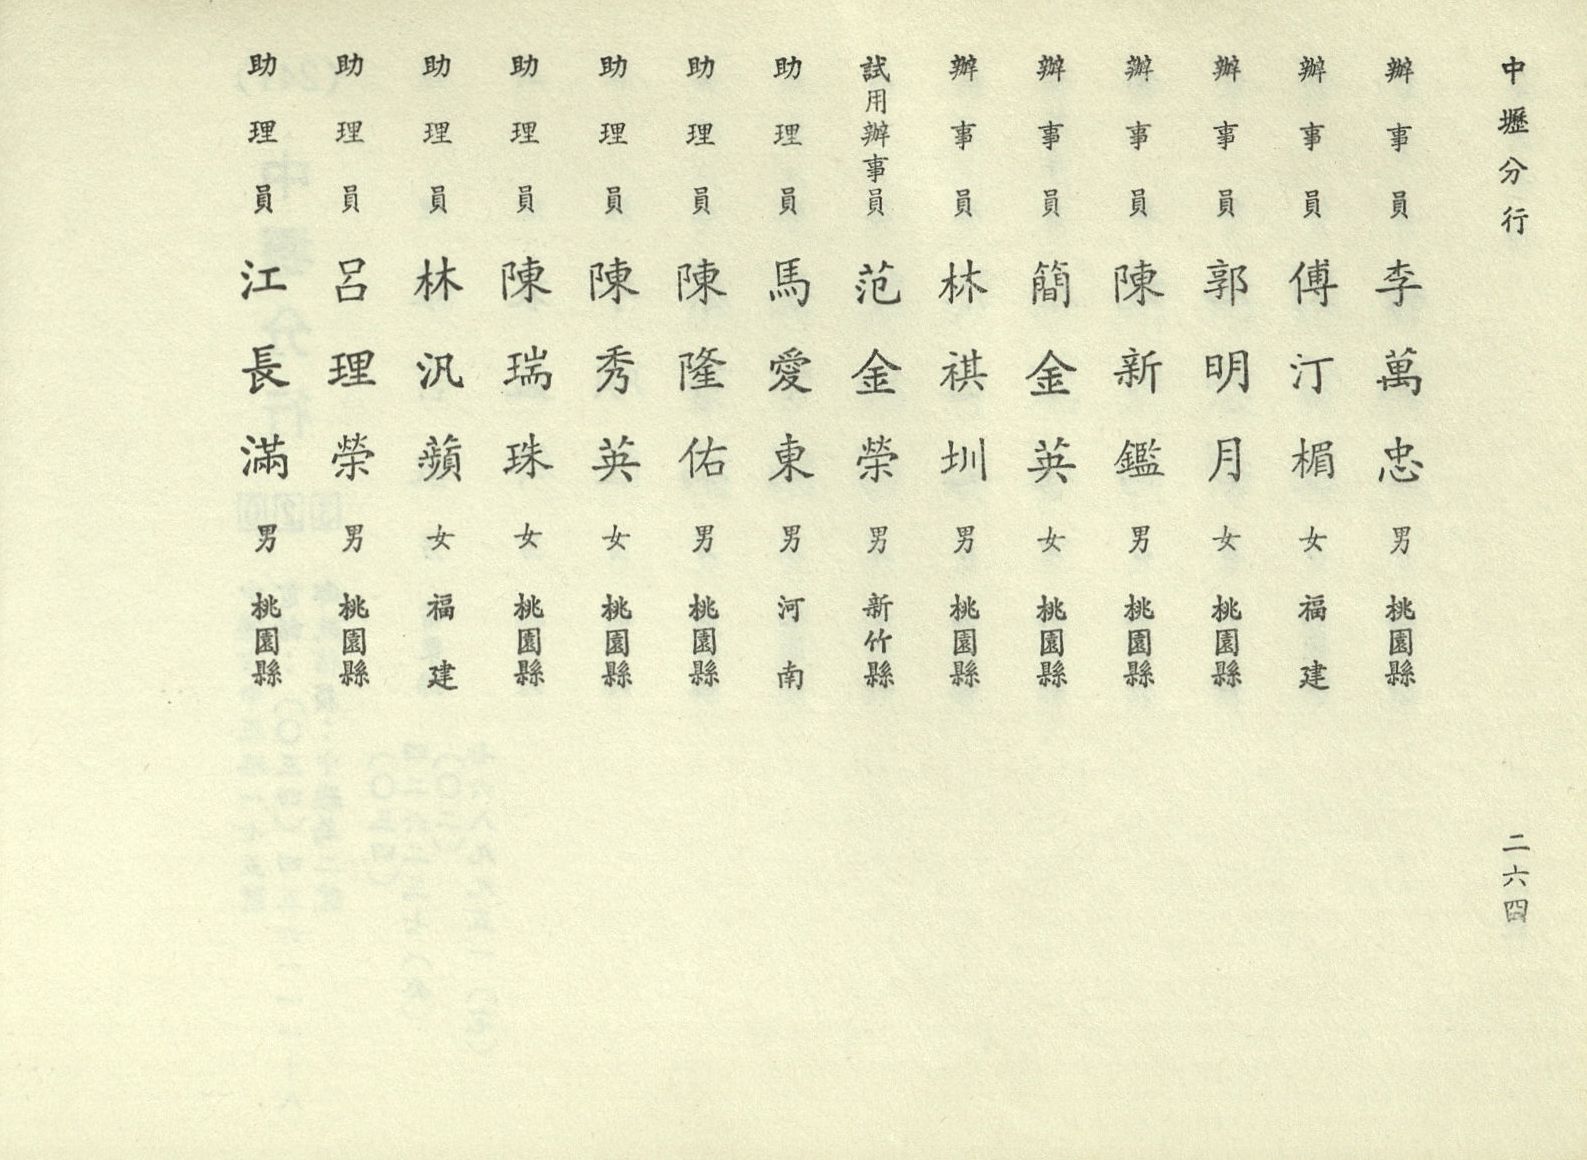 中壢分行
二六四
辦事員 李萬忠 男 桃園縣
辦事員 傅汀楣 女 福建
辦事員 郭明月 女 桃園縣
辦事員 陳新鑑 男 桃園縣
辦事員 簡金英 女 桃園縣
辦事員 林祺圳 男 桃園縣
試用辦事員 范金榮 男 新竹縣
助理員 馬愛東 男 河南
助理員 陳隆佑 男 桃園縣
助理員 陳秀英 女 桃園縣
助理員 陳瑞珠 女 桃園縣
助理員 林汎蘋 女 福建
助理員 呂理榮 男 桃園縣
助理員 江長滿 男 桃園縣